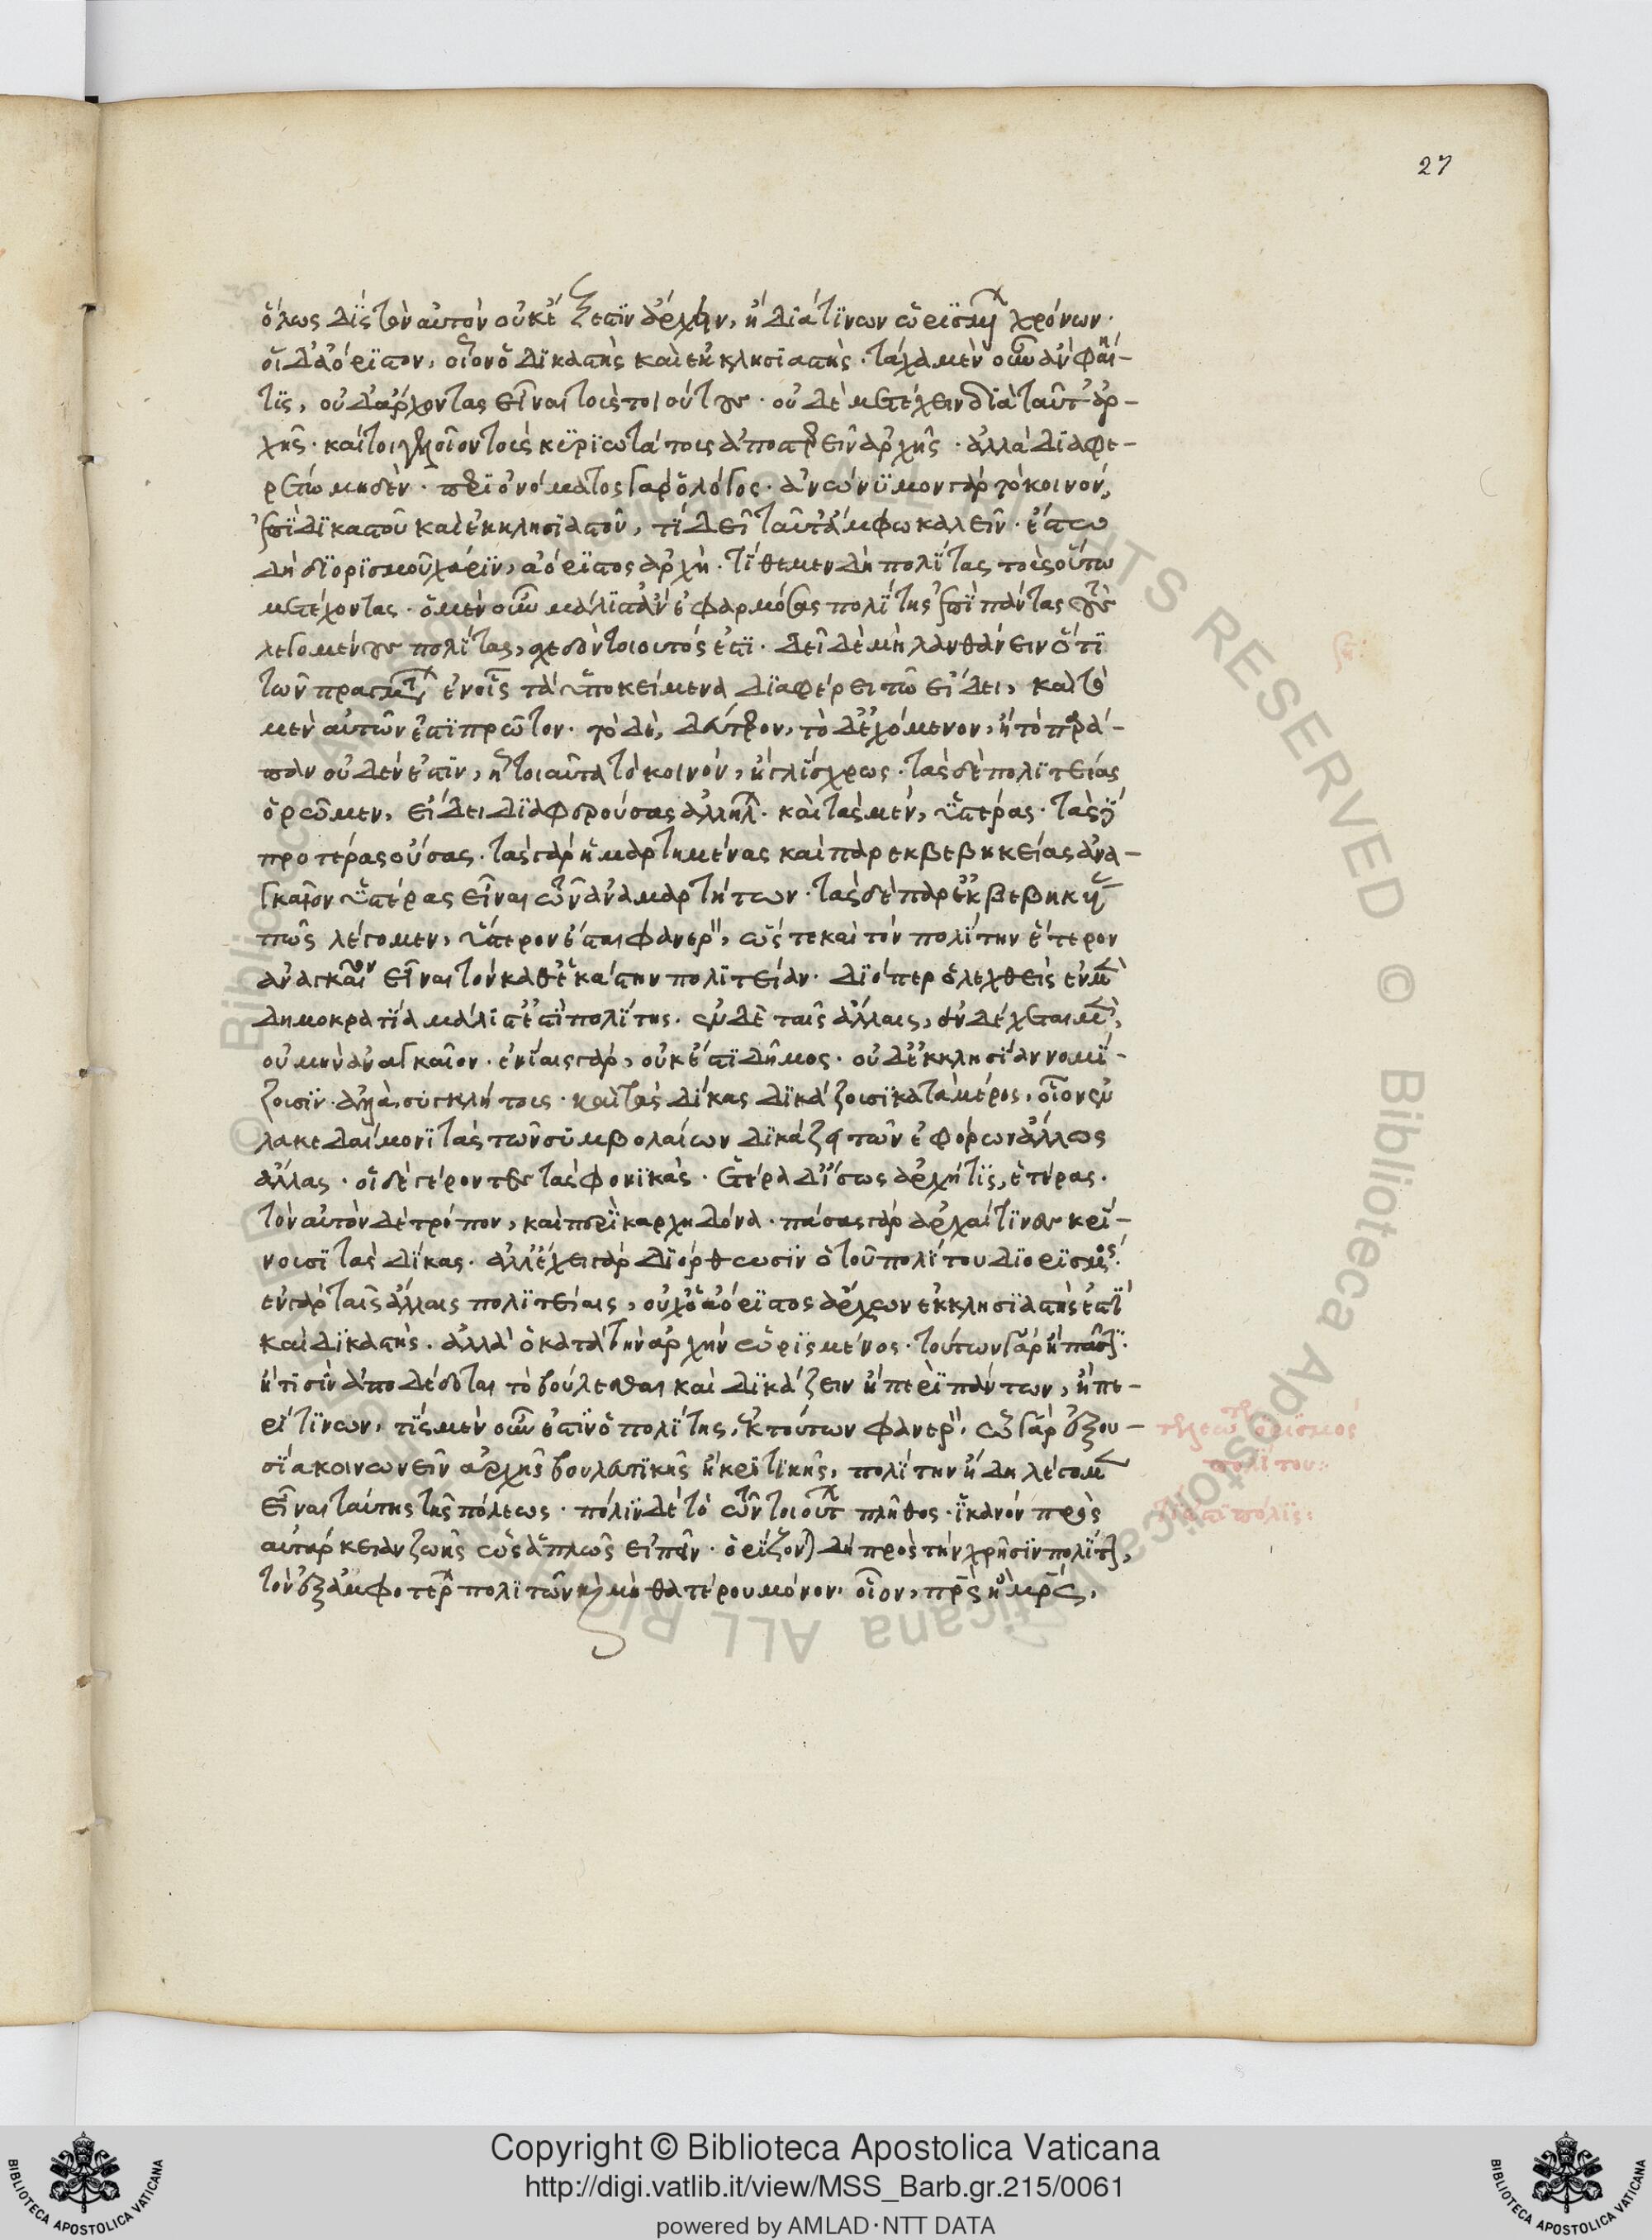 27
ὅλως δὶς τὸν αὐτὸν οὐκ ἔξεστιν ἄρχειν, ἢ διά τινων ὡρισμένων χρόνων·
ὁ δ' ἀόριστον, οἷον ὁ δικαστὴς καὶ ἐκκλησιαστής· τάχα μὲν οὖν ἂν φαίη
τις, οὐδ' ἄρχοντας εἶναι τοὺς τοιούτους· οὐδὲ μετέχειν διὰ ταῦτ' ἀρ-
χῆς· καίτοι γελοῖον τοὺς κυριωτάτους ἀποστερεῖν ἀρχῆς· ἀλλὰ διαφε-
ρέτω μηδέν· περὶ ὀνόματος γὰρ ὁ λόγος· ἀνώνυμον γὰρ τὸ κοινὸν,
ἐπὶ δικαστοῦ καὶ ἐκκλησιαστοῦ, τί δεῖ ταῦτ' ἄμφω καλεῖν· ἔστω
δὴ διορισμοῦ χάριν, ἀόριστος ἀρχή· τίθεμεν δὴ πολίτας τοὺς οὕτω
μετέχοντας· ὁ μὲν οὖν μάλιστ' ἂν ἐφαρμόσας πολίτης ἐπὶ πάντας τοὺς
λεγομένους πολίτας, σχεδὸν τοιοῦτός ἐστι· δεῖ δὲ μὴ λανθάνειν ὅτι
τῶν πραγμάτων ἐν οἷς τὰ ὑποκείμενα διαφέρει τῷ εἴδει, καὶ τὸ
μὲν αὐτῶν ἐστι πρῶτον· τὸ δὲ, δεύτερον, τὸ δ' ἐχόμενον, ἢ τὸ παρά-
παν οὐδέν ἐστιν, ᾗ τοιαῦτα τὸ κοινόν, ἢ γλίσχρως· τὰς δὲ πολιτείας
ὁρῶμεν, εἴδει διαφερούσας ἀλλήλων· καὶ τὰς μὲν, ὑστέρας· τὰς δὲ
προτέρας οὔσας· τὰς γὰρ ἡμαρτημένας καὶ παρεκβεβηκείας ἀνα-
γκαῖον ὑστέρας εἶναι τῶν ἀναμαρτήτων· τὰς δὲ παρεκβεβηκυίας
πῶς λέγομεν, ὕστερον ἔσται φανερὸν, ὥστε καὶ τὸν πολίτην ἕτερον
ἀναγκαῖον εἶναι τὸν καθ' ἑκάστην πολιτείαν· διόπερ ὁ λεχθεὶς ἐν μὲν
δημοκρατία μάλιστ' ἐστὶ πολίτης· ἐν δὲ ταῖς ἄλλαις, ἐνδέχεται μὲν,
οὐ μὴν ἀναγκαῖον· ἐνίαις γὰρ, οὐκ ἔστι δῆμος· οὐδ' ἐκκλησίαν νομί-
ζουσιν· ἀλλὰ συγκλήτους· καὶ τὰς δίκας δικάζουσι κατὰ μέρος, οἷον ἐν
λακεδαίμονι τὰς τῶν συμβολαίων δικάζει τῶν ἐφόρων ἄλλως
ἄλλας· οἱ δὲ γέροντες τὰς φονικάς· ἑτέρα δ' ἴσως ἀρχή τις, ἑτέρας·
τὸν αὐτὸν δὲ τρόπον, καὶ περὶ καρχηδόνα· πάσας γὰρ ἀρχαί τινες κρί-
νουσι τὰς δίκας· ἀλλ' ἔχει γὰρ διόρθωσιν ὁ τοῦ πολίτου διορισμός·
ἐν γὰρ ταῖς ἄλλαις πολιτείαις, οὐχ ὁ ἀόριστος ἄρχων ἐκκλησιαστής ἐστὶ
καὶ δικαστής· ἀλλὰ ὁ κατὰ τὴν ἀρχὴν ὡρισμένος· τούτων γὰρ ἢ πᾶσιν·
ἢ τισὶν ἀποδέδοται τὸ βουλεύεσθαι καὶ δικάζειν ἢ περὶ πάντων, ἢ πε-
ρί τινων, τίς μὲν οὖν ἐστιν ὁ πολίτης, ἐκ τούτων φανερόν, ᾧ γὰρ ἐξου-
σία κοινωνεῖν ἀρχῆς βουλευτικῆς ἢ κριτικῆς, πολίτην ἤδη λέγομεν
εἶναι ταύτης τῆς πόλεως· πόλιν δὲ τὸ τῶν τοιούτων πλῆθος· ἱκανὸν πρὸς
αὐτάρκειαν ζωῆς ὡς ἁπλῶς εἰπεῖν· ὁρίζονται δὴ πρὸς τὴν χρῆσιν πολίτην,
τὸν ἐξ ἀμφοτέρων πολιτῶν καὶ μὴ θατέρου μόνον· οἷον, πατρὸς ἢ μητρός,
ὁρισμὸς
πολίτου:
τί ἐστι πόλις:
Copyright © Biblioteca Apostolica Vaticana
http://digi.vatlib.it/view/MSS_Barb.gr.215/0061
powered by AMLAD·NTT DATA